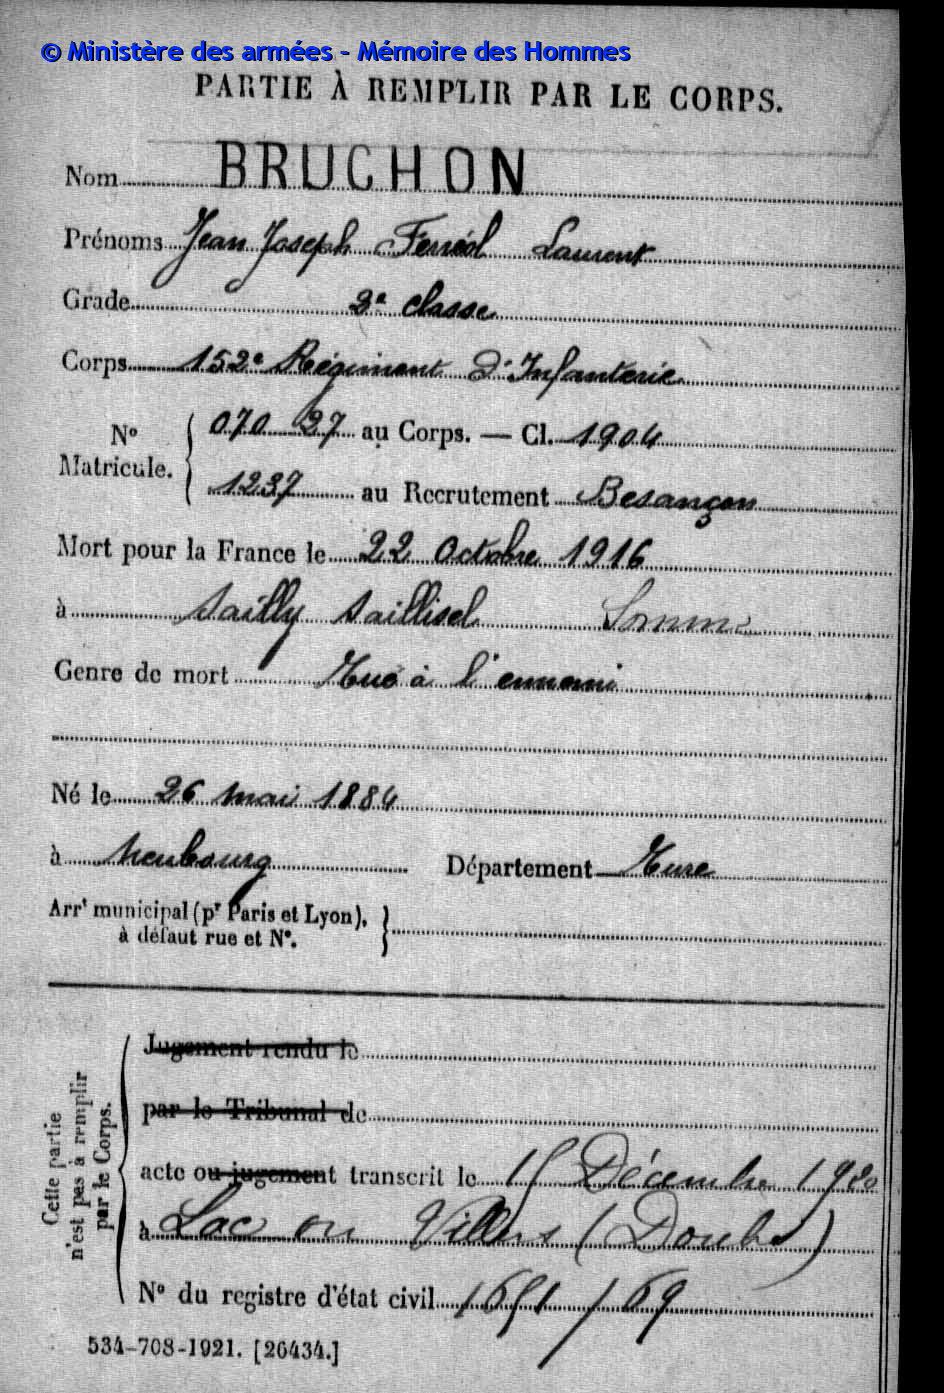 © Ministère des armées - Mémoire des Hommes
PARTIE À REMPLIR PAR LE CORPS.
Nom BRUCHON
Prénoms Jean Joseph Ferréol Laurent
Grade 2e classe
Corps 152e Régiment d'Infanterie
No Matricule. 070 27 au Corps. — Cl. 1904
1237 au Recrutement Besançon
Mort pour la France le 22 Octobre 1916
à Sailly Saillisel Somme
Genre de mort Tué à l'ennemi
Né le 26 mai 1884
à Neubourg Département Eure
Arrt municipal (pr Paris et Lyon),
à défaut rue et No.
Cette partie
n'est pas à remplir
par le Corps.
Jugement rendu le
par le Tribunal de
acte ou jugement transcrit le 15 Décembre 1920
à Lac ou Villers (Doubs)
No du registre d'état civil 1651/69
534-708-1921. [26434.]